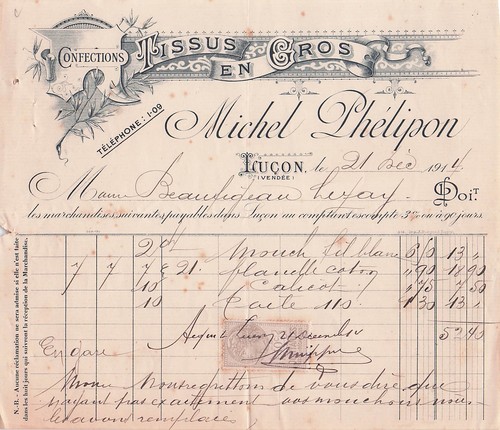 CONFECTIONS
TISSUS
EN GROS
TÉLÉPHONE: 1-09
Michel Phélipon
LUÇON, le 21 Déc 1914
(VENDÉE)
M Doit
les marchandises suivantes payables dans Luçon au comptant escompte 3% ou à 90 jours.
2 Mouch fil blanc 6/0 13 "
7 7 7 & 21. flanelle coton " 90 18 90
10 Calicot " 75 7 50
10 110 1 30 13 "
52 40
Luçon 21 Décembre
En gare
Nous regrettons de vous dire que
n'ayant pas exactement vos mouchoirs nous
les avons remplacés
N.-B. - Aucune réclamation ne sera admise si elle n'est faite
dans les huit jours qui suivront la réception de la Marchandise.